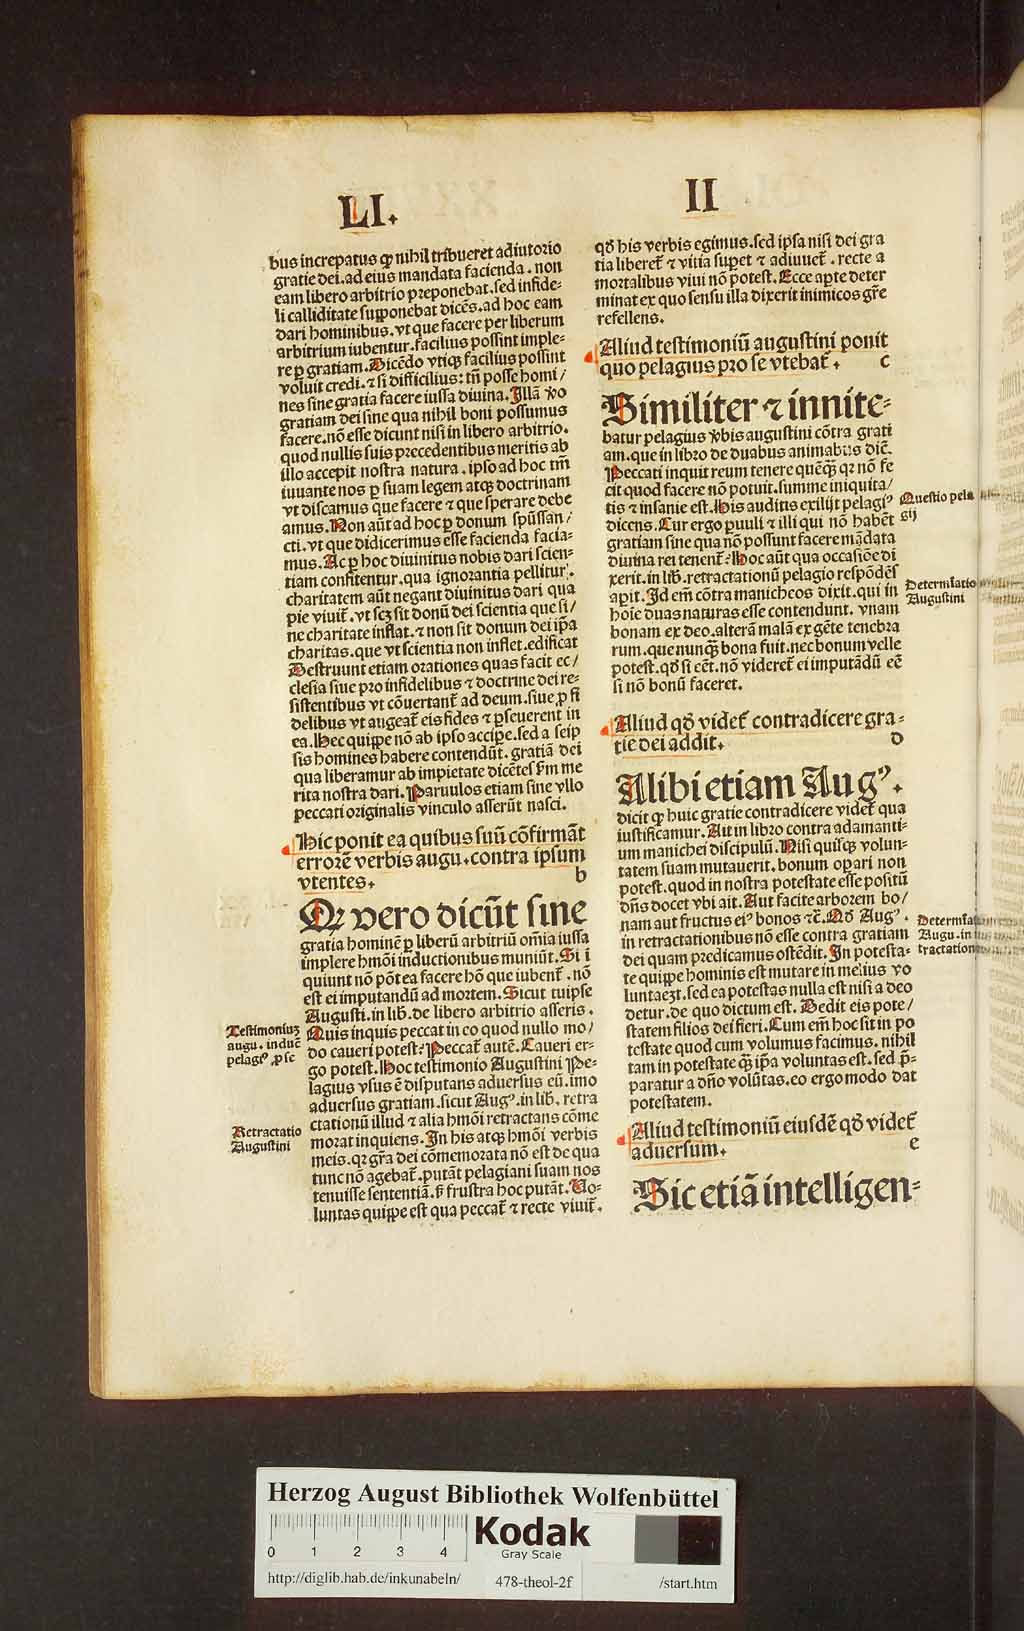 LI.
II
bus increpatus ꝙ nihil tribueret adiutorio
gratie dei. ad eius mandata facienda. non
eam libero arbitrio preponebat. sed infide-
li calliditate supponebat dicēs. ad hoc eam
dari hominibus. vt que facere per liberum
arbitrium iubentur. facilius possint imple-
re ꝑ gratiam. Dicēdo vtiqꝫ facilius possint
voluit credi. ⁊ si difficilius: tn̄ posse homi/
nes sine gratia facere iussa diuina. Illā ꝟo
gratiam dei sine qua nihil boni possumus
facere. nō esse dicunt nisi in libero arbitrio.
quod nullis suis precedentibus meritis ab
illo accepit nostra natura. ipso ad hoc tm̄
iuuante nos ꝑ suam legem atqꝫ doctrinam
vt discamus que facere ⁊ que sperare debe
amus. Non aūt ad hoc ꝑ donum spūssan/
cti. vt que didicerimus esse facienda facia-
mus. Ac ꝑ hoc diuinitus nobis dari scien-
tiam confitentur. qua ignorantia pellitur.
charitatem aūt negant diuinitus dari qua
pie viuit̄. vt scꝫ sit donū dei scientia que si/
ne charitate inflat. ⁊ non sit donum dei ip̄a
charitas. que vt scientia non inflet. edificat
Destruunt etiam orationes quas facit ec/
clesia siue pro infidelibus ⁊ doctrine dei re-
sistentibus vt cōuertant̄ ad deum. siue ꝓ fi
delibus vt augeat̄ eis fides ⁊ ꝑseuerent in
ea. Hec quippe nō ab ipso accipe. sed a seip
sis homines habere contendūt. gratiā dei
qua liberamur ab impietate dicētes ẜm me
rita nostra dari. Paruulos etiam sine vllo
peccati originalis vinculo asserūt nasci.
Hic ponit ea quibus suū cōfirmāt
errorē verbis augu. contra ipsum
vtentes. b
Qꝛ vero dicūt sine
gratia hominē ꝑ liberū arbitriū om̄ia iussa
implere hmōi inductionibus muniūt. Si i
quiunt nō pōt ea facere hō que iubent̄. nō
est ei imputandū ad mortem. Sicut tuipse
Augusti. in lib. de libero arbitrio asseris.
Quis inquis peccat in eo quod nullo mo/
do caueri potest? Peccat̄ autē. Caueri er-
go potest. Hoc testimonio Augustini Pe-
lagius vsus ē disputans aduersus eū. imo
aduersus gratiam. sicut Augꝰ. in lib. retra
ctationū illud ⁊ alia hmōi retractans cōme
morat inquiens. In his atqꝫ hmōi verbis
meis. qꝛ gr̄a dei cōmemorata nō est de qua
tunc nō agebat̄. putāt pelagiani suam nos
tenuisse sententiā. ẜ frustra hoc putāt. Vo-
luntas quippe est qua peccat̄ ⁊ recte viuit̄.
Testimoniuꝫ
augu. induc̄
pelagꝰ ꝓ se
Retractatio
Augustini
qd̄ his verbis egimus. sed ipsa nisi dei gra
tia liberet̄ ⁊ vitia supet ⁊ adiuuet̄. recte a
mortalibus viui nō potest. Ecce aꝑte deter
minat ex quo sensu illa dixerit inimicos gr̄e
refellens.
Aliud testimoniū augustini ponit
quo pelagius pro se vtebat̄. c
Similiter ⁊ innite-
batur pelagius ꝟbis augustini cōtra grati
am. que in libro de duabus animabus dic̄.
Peccati inquit reum tenere quēqꝫ qꝛ nō fe
cit quod facere nō potuit. summe iniquita/
tis ⁊ insanie est. His auditus exilijt pelagiꝰ
dicens. Cur ergo ꝑuuli ⁊ illi qui nō habēt
gratiam sine qua nō possunt facere mādata
diuina rei tenent̄? Hoc aūt qua occasiōe di
xerit. in lib. retractationū pelagio respōdēs
aꝑit. Id em̄ cōtra manicheos dixit. qui in
hoīe duas naturas esse contendunt. vnam
bonam ex deo. alterā malā ex gēte tenebra
rum. que nunqꝫ bona fuit. nec bonum velle
potest. qd̄ si eēt. nō videret̄ ei imputādū eē
si nō bonū faceret.
Aliud qd̄ videt̄ contradicere gra-
tie dei addit. d
Alibi etiam Augꝰ.
dicit ꝙ huic gratie contradicere videt̄ qua
iustificamur. Ait in libro contra adamanti-
um manichei discipulū. Nisi quisqꝫ volun-
tatem suam mutauerit. bonum oꝑari non
potest. quod in nostra potestate esse positū
dn̄s docet vbi ait. Aut facite arborem bo/
nam aut fructus eiꝰ bonos ⁊c̄. Qd̄ Augꝰ.
in retractationibus nō esse contra gratiam
dei quam predicamus ostēdit. In potesta-
te quippe hominis est mutare in melius vo
luntaeꝫt. sed ea potestas nulla est nisi a deo
detur. de quo dictum est. Dedit eis pote/
statem filios dei fieri. Cum em̄ hoc sit in po
testate quod cum volumus facimus. nihil
tam in potestate qꝫ ip̄a voluntas est. sed p̄-
paratur a dn̄o volūtas. eo ergo modo dat
potestatem.
Aliud testimoniū eiusdē qd̄ videt̄
aduersum. e
Sic etiā intelligen-
Questio pela
gij
Determīatio
Augustini
Determīa
Augu. in
tractation
Herzog August Bibliothek Wolfenbüttel
0 1 2 3 4
Kodak
Gray Scale
http://diglib.hab.de/inkunabeln/ 478-theol-2f /start.htm